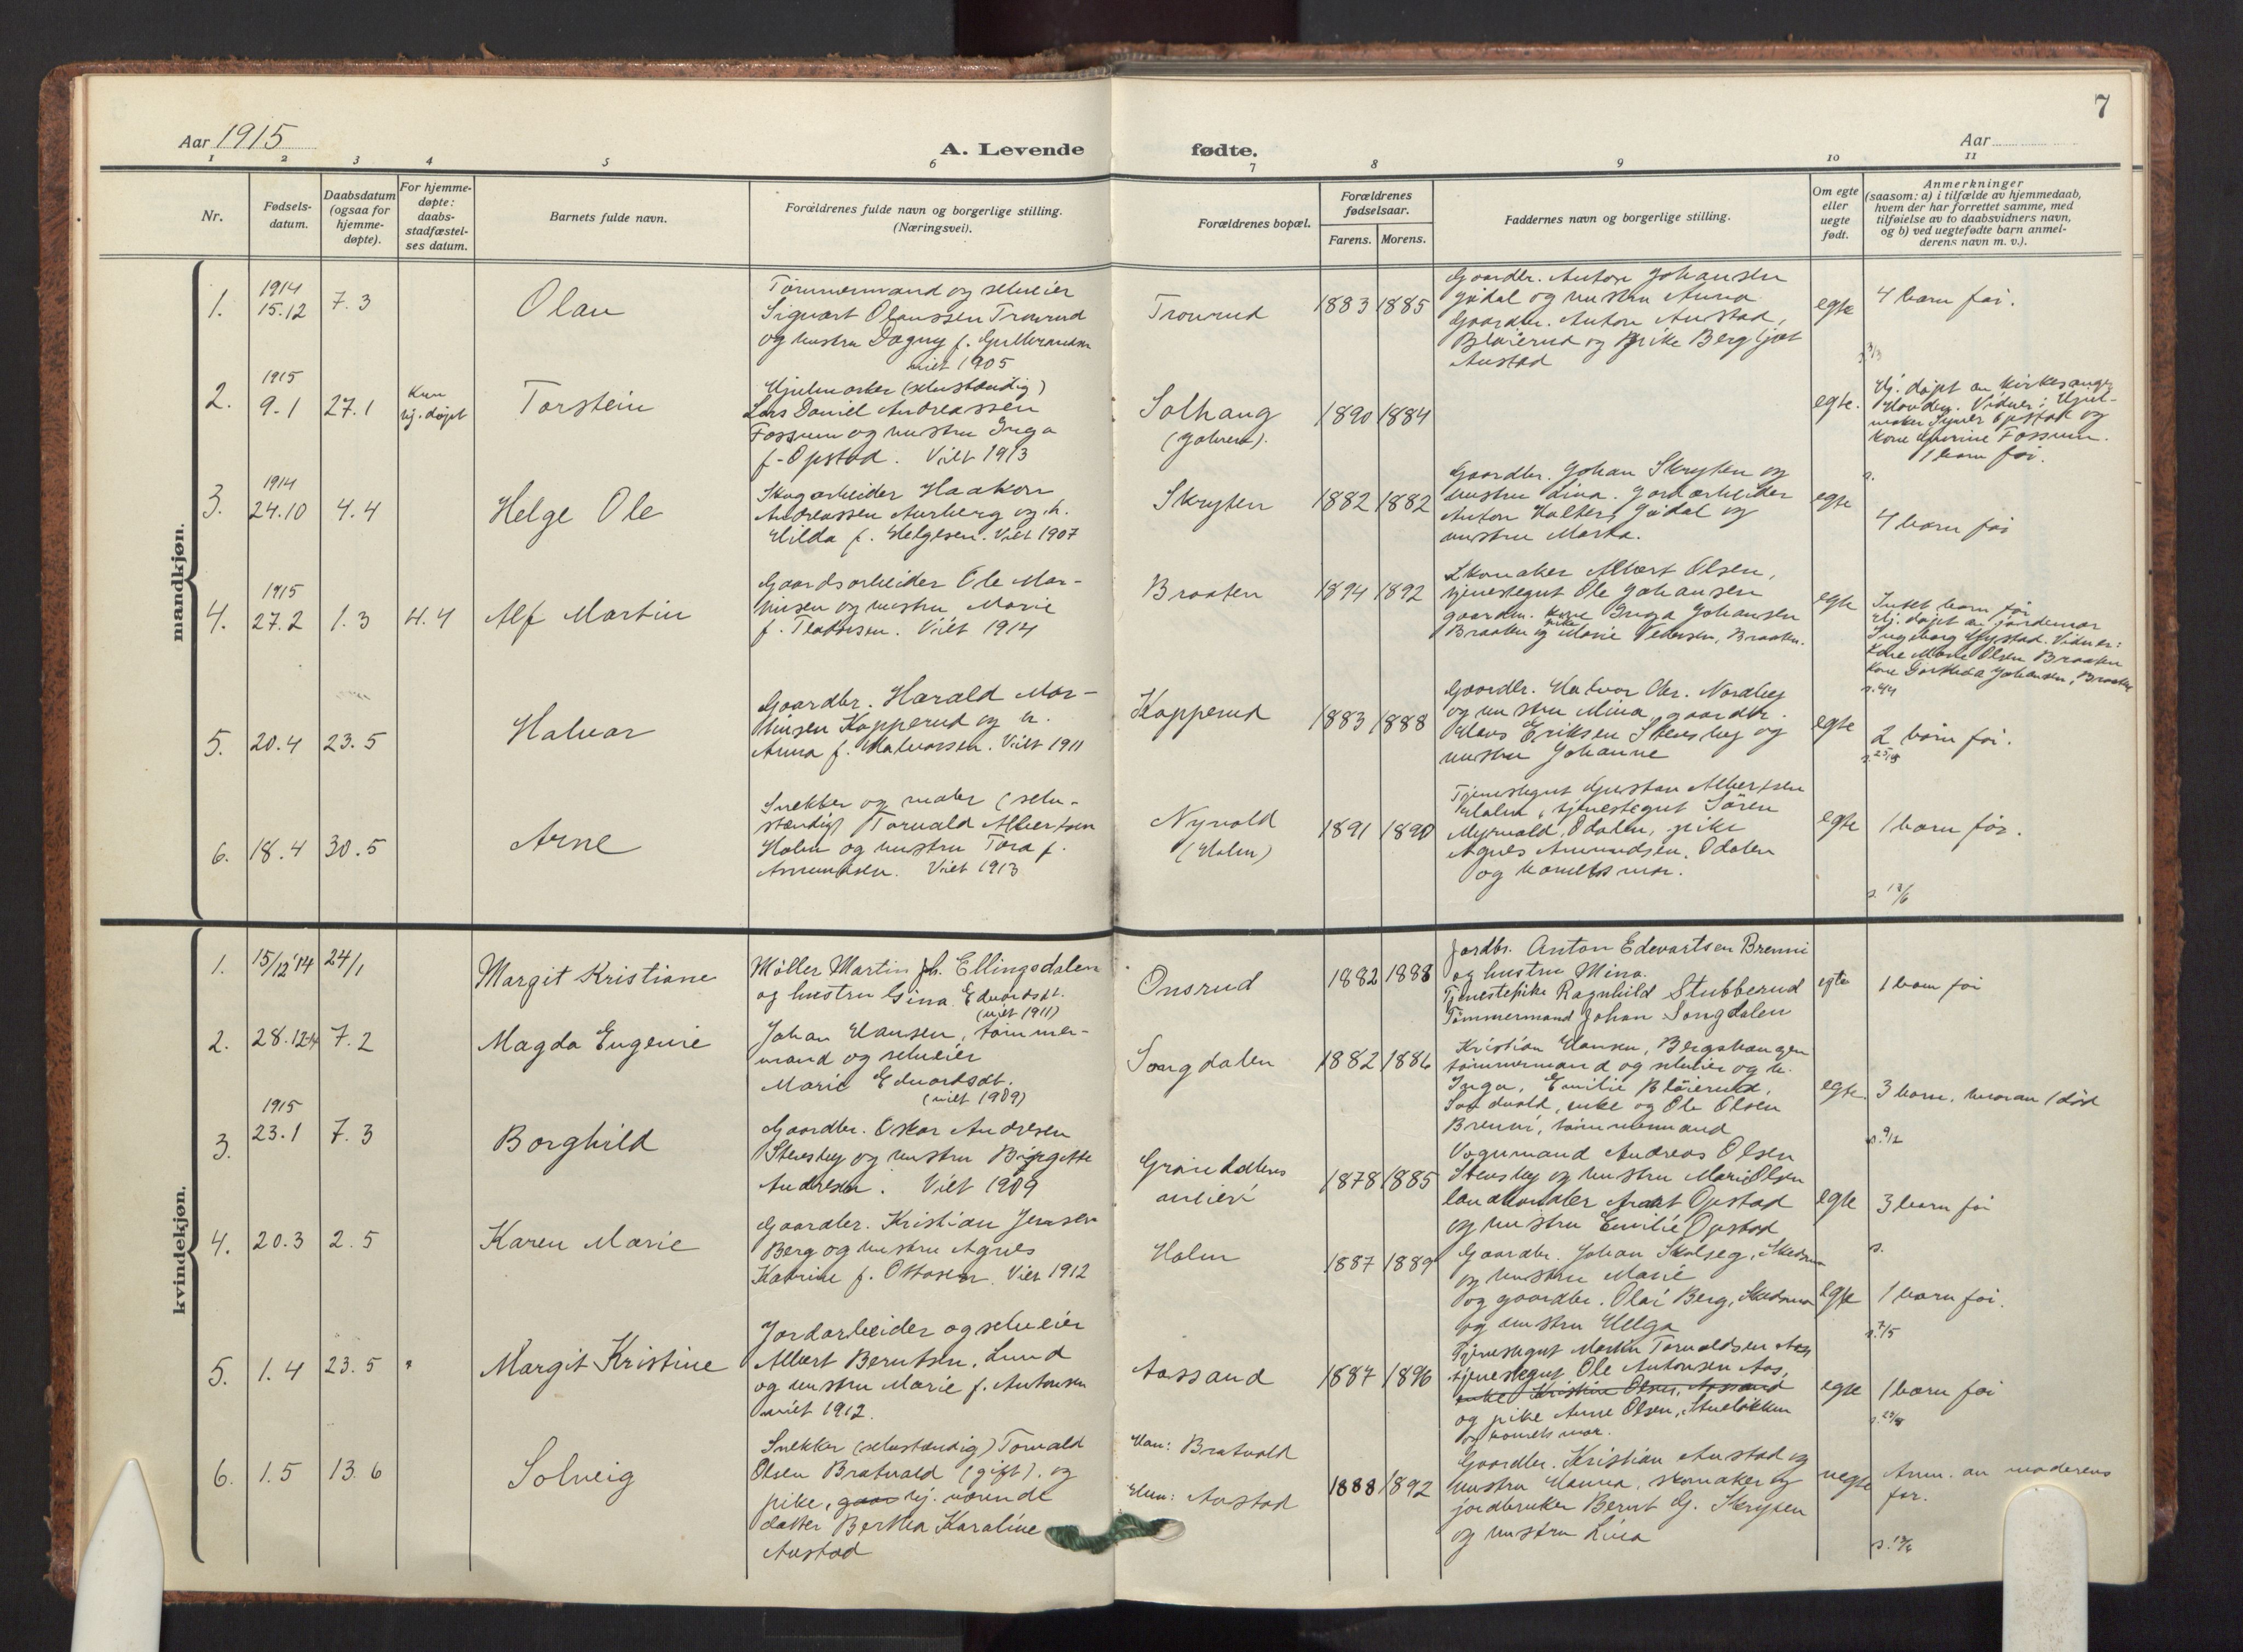 7
Aar 1915
A. Levende
fødte.
Aar
1 2 3 4 5 6 7 8 9 10 11
Nr.
Fødsels-
datum.
Daabsdatum
(ogsaa for
hjemme-
døpte).
For hjemme-
døpte:
daabs-
stadfæstel-
ses datum.
Barnets fulde navn.
Forældrenes fulde navn og borgerlige stilling.
(Næringsvei).
Forældrenes bopæl.
Forældrenes
fødselsaar.
Farens. Morens.
Faddernes navn og borgerlige stilling.
Om egte
eller
uegte
født.
Anmerkninger
(saasom: a) i tilfælde av hjemmedaab,
hvem der har forrettet samme, med
tilføielse av to daabsvidners navn,
og b) ved uegtefødte barn anmel-
derens navn m. v.).
mandkjøn.
1.
1914
15.12
7.3
Olav
Tømmermand og selveier
Sigvart Olaussen Trovrud
og hustru Dagny f. Gulbrandsen
viet 1905
Trovrud
1883 1885
Gaardbr. Anton Johansen
Jødal og hustru Anna
Gaardbr. Anton Austad,
Bløierud og pike Bergljot
Austad
egte
4 barn før.
2.
1915
9.1
27.1
Kun
hj. døpt
Torstein
Hjulmaker (selvstændig)
Lars Daniel Andreassen
Fossum og hustru Inga
f. Opstad. Viet 1913
Solhaug
1890 1884
egte.
Hj. døpt av kirkesanger
Vidner: Hjul-
maker Opstad og
kone Fossum.
1 barn før.
3.
1914
24.10
4.4
Helge Ole
Skogarbeider Haakon
Andreassen Aurberg og h.
Hilda f. Helgesen. Viet 1907
Skryten
1882 1882
Gaardbr. Johan Skryten og
hustru Lina. Jordarbeider
Anton Halter, Jødal og
hustru Marta.
egte
s.
4 barn før
4.
1915
27.2
1.3
4.4
Alf Martin
Gaardsarbeider Ole Mar-
tinsen og hustru Marie
f. Teodorsen. Viet 1914
Braaten
1894 1892
Skomaker Albert Olsen,
tjenestegut Ole Johansen
gaarden. kone Inga Johansen
Braaten og pike Marie Pedersen, Braaten.
egte
Intet barn før
Hj. døpt av jordemor
Ingeborg Nystad. Vidner:
Kone Marie Olsen Braaten
kone Johansen, Braaten
s. 4/4
5.
20.4
23.5
Halvor
Gaardbr. Harald Mar-
tinsen Kopperud og h.
Anna f. Halvorsen. Viet 1911
Kopperud
1883 1888
Gaardbr. Halvor Chr. Nordby
og hustru Mina, gaardbr.
Klaus Eriksen Stensby og
hustru Johanne
egte
2 barn før.
6.
18.4
30.5
Arne
Snekker og maler (selv-
stændig) Torvald Albertsen
Holm og hustru Tora f.
Amundsen. Viet 1913
Nyvold
(Holm)
1891 1890
Tjenestegut Gustav Albertsen
Holm, tjenestegut Søren
Myrvold, Odalen, pike
Agnes Amundsen, Odalen
og barnets mor.
egte
1 barn før.
s. 13/6
kvindekjøn.
1.
15/12 '14
24/1
Margit Kristiane
Møller Martin Joh. Ellingsdalen
og hustru Gina Edvardsdt.
(viet 1911)
Onsrud
1882 1888
Jordbr. Anton Edvartsen Brenni
og hustru Mina.
Tjenestepike Ragnhild Stubberud
Tømmermand Johan Songdalen
egte
1 barn før
2.
28.12.14
7.2
Magda Eugenie
Johan Hansen, tømmer-
mand og selveier
Marie Edvardsdt.
(viet 1909)
Songdalen
1882 1886
Kristian Hansen, Bergshaugen
tømmermand og selveier og h.
Inga, Emilie Bløierud,
Sandvold, enke og Ole Olsen
Brenni, tømmermand
egte
3 barn, hvorav 1 død
s. 9/2
3.
1915
23.1
7.3
Borghild
Gaardbr. Oskar Andresen
Stensby og hustru Birgitte
Andresen. Viet 1909
1878 1885
Vognmand Andreas Olsen
Stensby og hustru Marie Olsen
landhandler Opstad
og hustru Emilie Opstad
egte
3 barn før
s.
4.
20.3
2.5
Karen Marie
Gaardbr. Kristian Jensen
Berg og hustru Agnes
Katrine f. Ottosen. Viet 1912
Holm
1887 1889
Gaardbr. Johan Skolseg, Skedsmo
og hustru Marie
og gaardbr. Olai Berg, Skedsmo
og hustru Helga
egte
1 barn før.
s. 7/5
5.
1.4
23.5
Margit Kristine
Jordarbeider og selveier
Albert Berntsen, Lund
og hustru Marie f. Antonsen
viet 1912.
Aossand
1887 1896
Tjenestegut Martin Torvaldsen Aas
tjenestegut Ole Antonsen Aas,
enke Kristine Olsen, Aossand
og pike Anne Olsen, Stueløkken
og barnets mor.
egte
1 barn før
6.
1.5
13.6
Solveig
Snekker (selvstændig) Torvald
Olsen Bratvold (gift). og
pike, hj. værende
datter Bertha Karoline
Austad
Han: Bratvold
Hun: Austad
1888 1892
Gaardbr. Kristian Austad og
hustru Hanna, skomaker og
jordbruker Bernt G. Skryten
og hustru Lina
uegte
Anm. av moderens
far.
s. 13/6